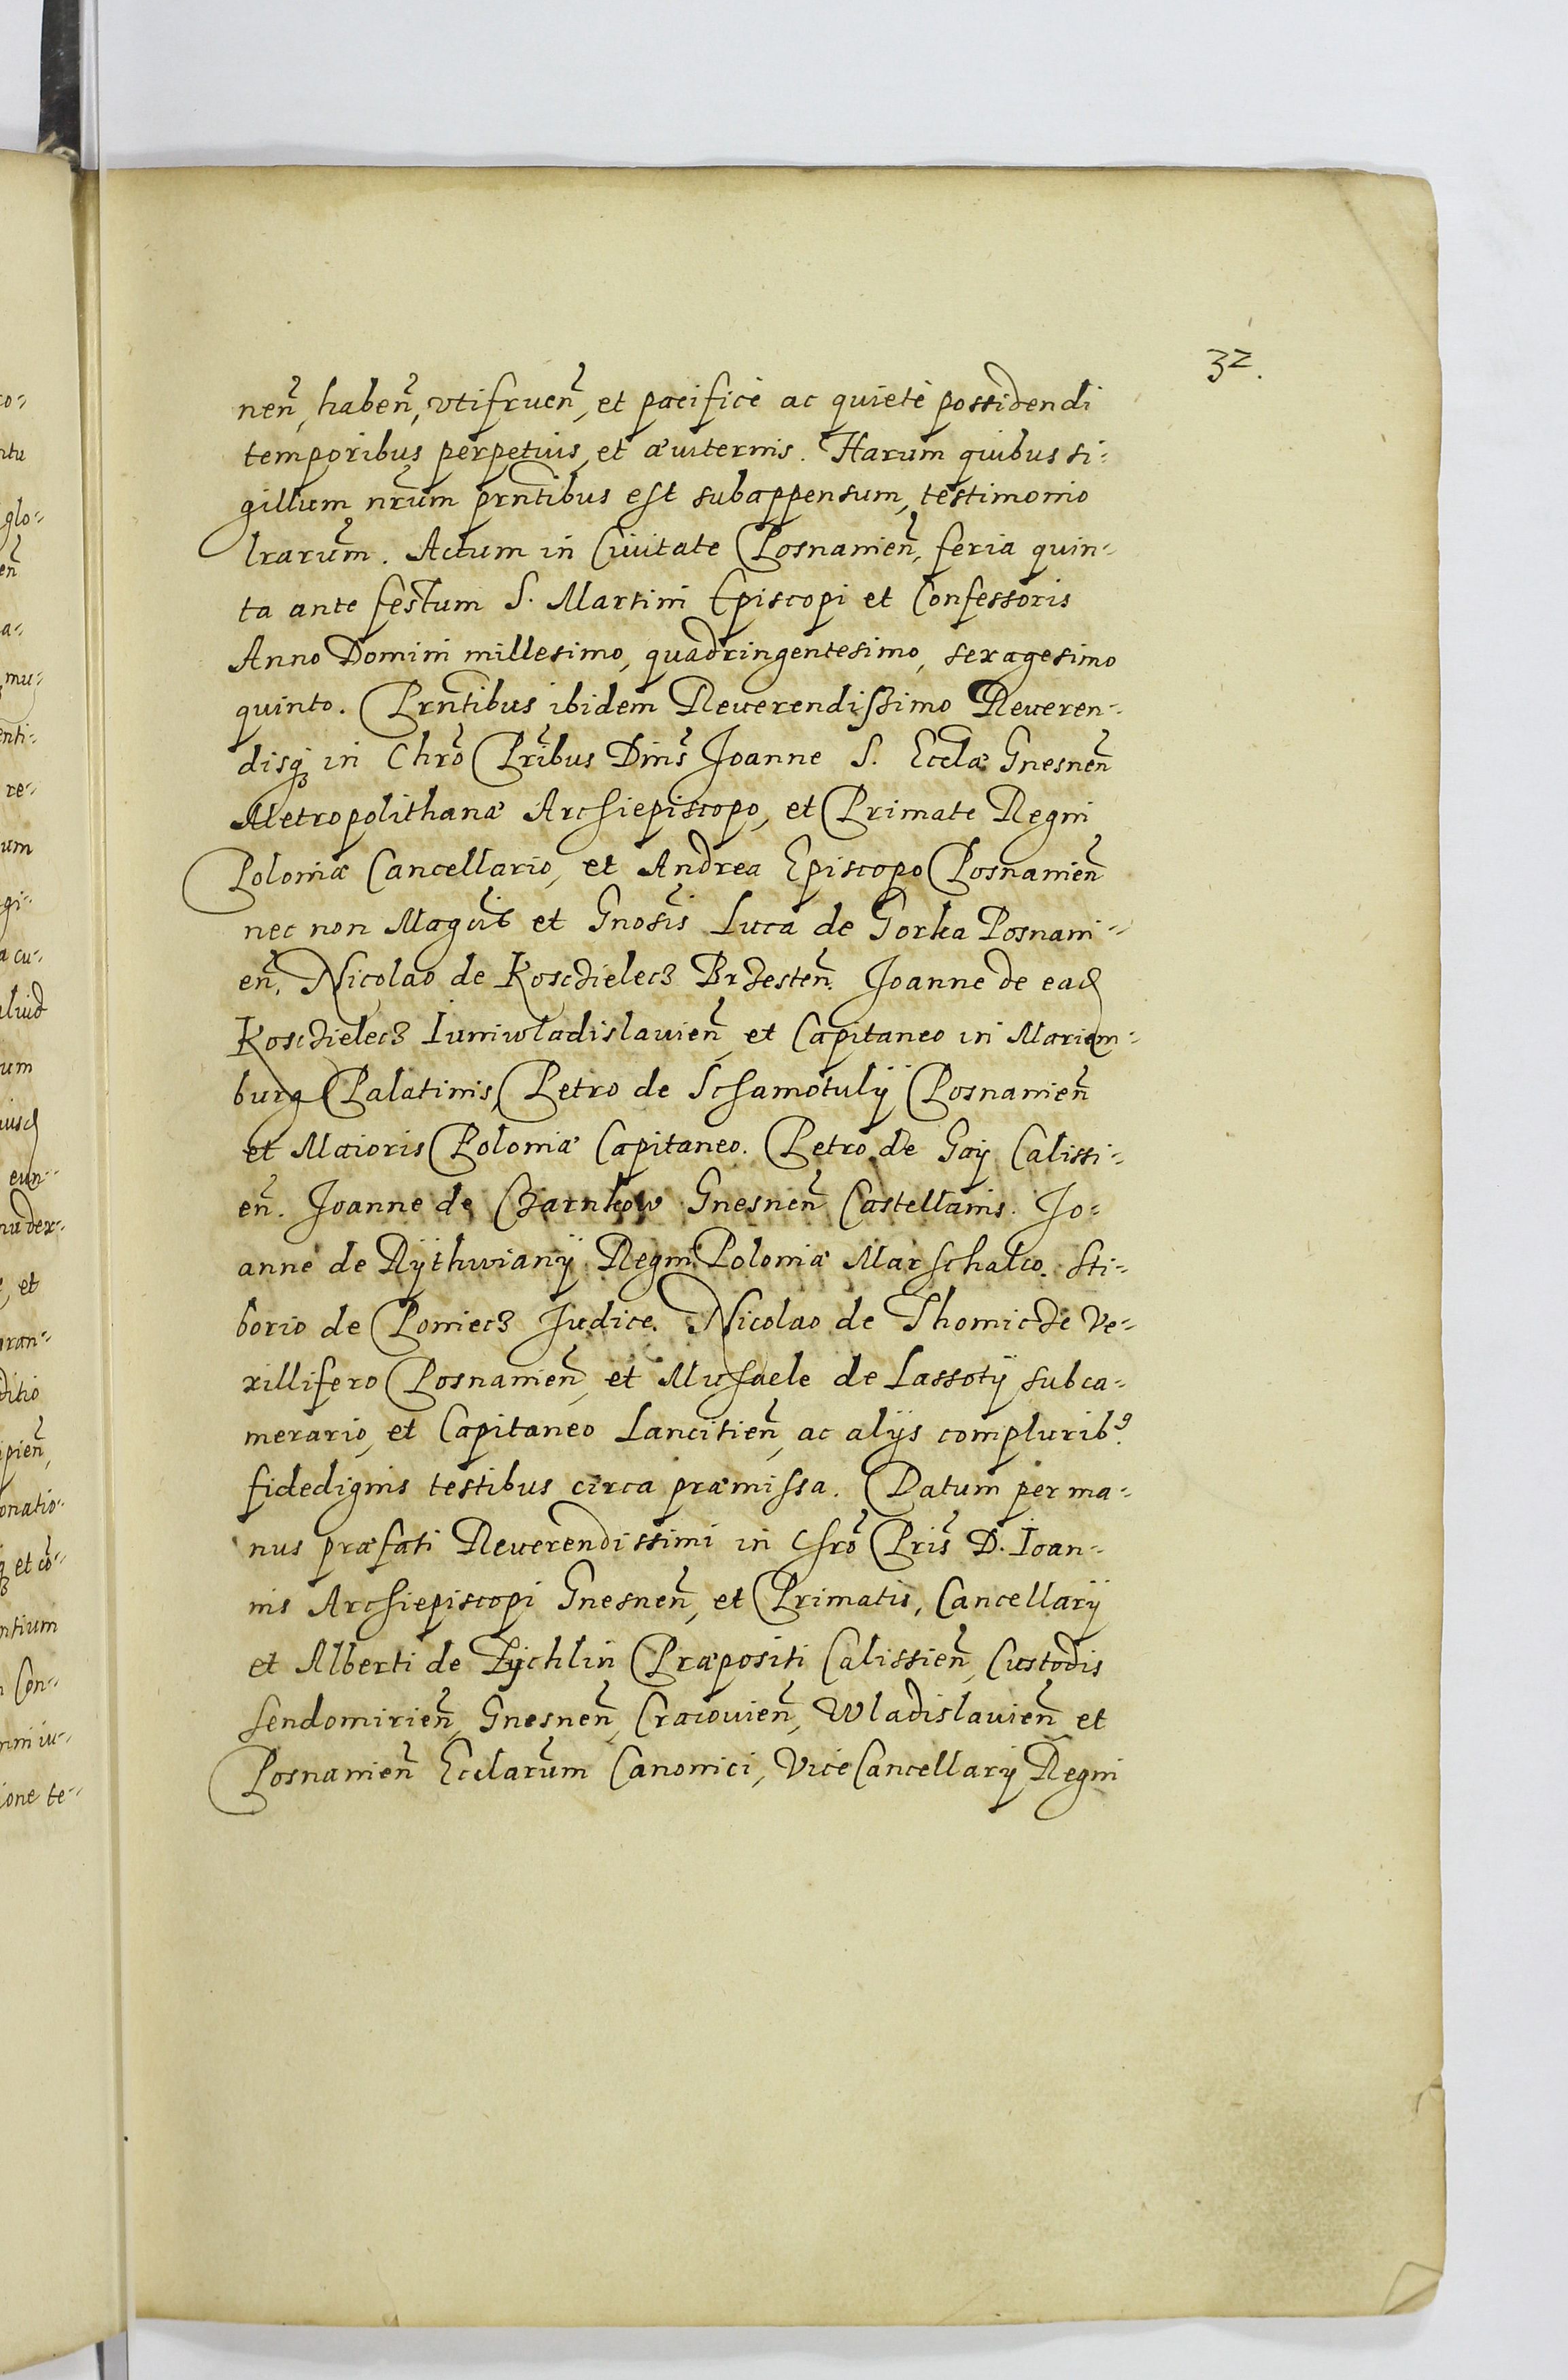 32.
neñ, habeñ, vtifrueñ, et pacificè ac quietè possidendi
temporibus perpetuis, et æuiternis. Harum quibus si-
gillum nr̃um prñtibus est subappensum, testimonio
lrarum̃. Actum in Ciuitate Posnanieñ, feria quin-
ta ante festum S. Martini Episcopi et Confessoris
Anno Domini millesimo, quadringentesimo, sexagesimo
quinto. Prñtibus ibidem Reuerendissimo Reueren-
disq́ in Chrõ Pr̃ibus Dnĩs Joanne S. Ecclæ Gnesneñ
Metropolithanæ Archiepiscopo, et Primate Regni
Poloniæ Cancellario, et Andrea Episcopo Posnanieñ
nec non et Gnosĩs Luca de Gorka Posnani-
eñ, Nicolao de Kosczielecz Brzesteñ. Joanne de ead
Kosczielecz Iuniwladislauieñ, et Capitaneo in Mariem-
burg Palatinis, Petro de Schamotulÿ Posnanieñ
et Maioris Poloniæ Capitaneo. Petro de Gaÿ Calissi-
eñ. Joanne de Czarnkow Gnesneñ Castellanis. Jo-
anne de Rÿthwianÿ Regni Poloniæ Marschalco. Sti-
borio de Poniecz Judice. Nicolao de Thomicze Ve-
xillifero Posnanieñ, et Michaele de Lassotÿ subca-
merario, et Capitaneo Lancitieñ, ac alijs compluribꝰ
fidedignis testibus circa præmissa. Datum per ma-
nus præfati Reuerendissimi in Chrõ Pris̃ D. Ioan-
nis Archiepiscopi Gnesneñ, et Primatis, Cancellarÿ
et Alberti de Zÿchlin Præpositi Calissieñ, Custodis
Sendomirieñ, Gnesneñ, Cracouieñ, Wladislauieñ et
Posnanieñ Ecclarum̃ Canonici, Vice Cancellarÿ Regni